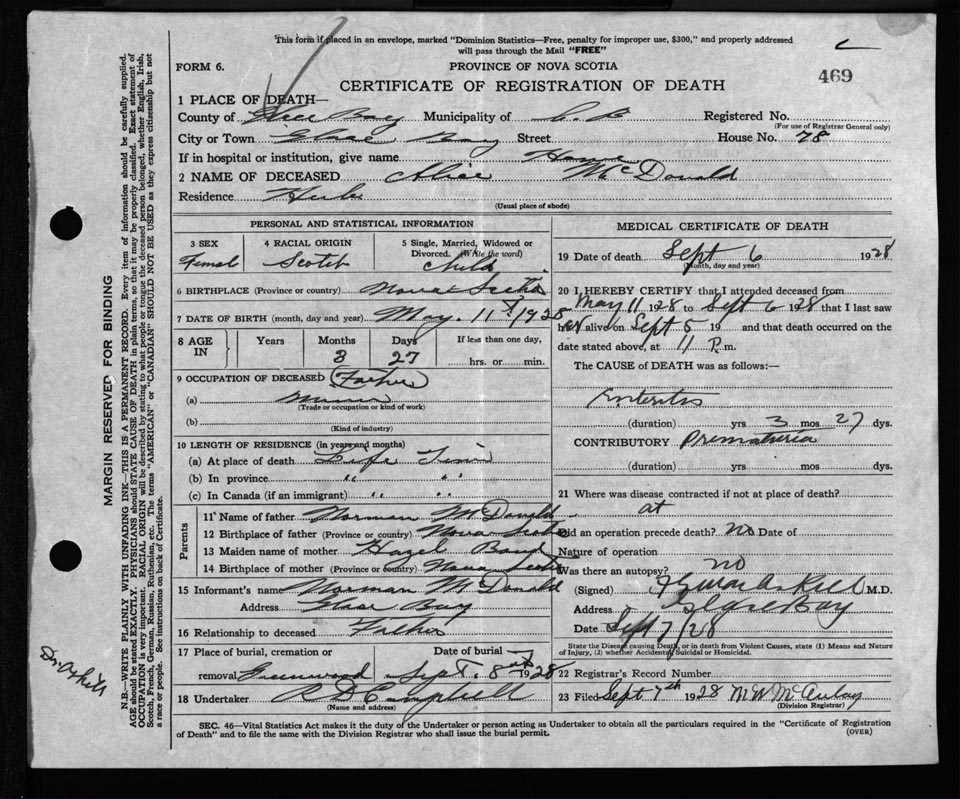 This form if placed in an envelope, marked "Dominion Statistics—Free, penalty for improper use, $300," and properly addressed
will pass through the Mail "FREE"
FORM 6.
PROVINCE OF NOVA SCOTIA
469
CERTIFICATE OF REGISTRATION OF DEATH
1 PLACE OF DEATH—
County of Glace Bay Municipality of C. B Registered No.
(For use of Registrar General only)
City or Town Glace Bay Street House No. 78
If in hospital or institution, give name Home
2 NAME OF DECEASED Alice McDonald
Residence
(Usual place of abode)
PERSONAL AND STATISTICAL INFORMATION
3 SEX 4 RACIAL ORIGIN 5 Single, Married, Widowed or
Divorced. (Write the word)
Femal Scotch Child
6 BIRTHPLACE (Province or country) Nova Scotia
7 DATE OF BIRTH (month, day and year) May. 11 1928
8 AGE IN Years Months Days If less than one day,
3 27 hrs. or min.
9 OCCUPATION OF DECEASED (Father)
(a) Miner
(Trade or occupation or kind of work)
(b)
(Kind of industry)
10 LENGTH OF RESIDENCE (in years and months)
(a) At place of death Life Time
(b) In province " "
(c) In Canada (if an immigrant) " "
Parents
11 Name of father Norman McDonald
12 Birthplace of father (Province or country) Nova Scotia
13 Maiden name of mother Hazel Boyd
14 Birthplace of mother (Province or country) Nova Scotia
15 Informant's name Norman McDonald
Address Glace Bay
16 Relationship to deceased Father
17 Place of burial, cremation or Date of burial
removal Greenwood Sept. 8 1928
18 Undertaker R D Campbell
(Name and address)
MEDICAL CERTIFICATE OF DEATH
19 Date of death Sept 6 1928
(Month, day and year)
20 I HEREBY CERTIFY that I attended deceased from
May 11 1928 to Sept 6 1928 that I last saw
her alive on Sept 5 19 and that death occurred on the
date stated above, at 11 P.m.
The CAUSE of DEATH was as follows:—
Enteritis
(duration) yrs 3 mos 27 dys.
CONTRIBUTORY Prematuria
(duration) yrs mos dys.
21 Where was disease contracted if not at place of death?
at
Did an operation precede death? no Date of
Nature of operation
Was there an autopsy? no
(Signed) M.D.
Address Glace Bay
Date Sept 7/28
State the Disease causing Death, or in death from Violent Causes, state (1) Means and
Nature of Injury, (2) whether Accidental, Suicidal or Homicidal.
22 Registrar's Record Number
23 Filed Sept 7th 1928 M W McAulay
(Division Registrar)
SEC. 46—Vital Statistics Act makes it the duty of the Undertaker or person acting as Undertaker to obtain all the particulars required in the "Certificate of Registration
of Death" and to file the same with the Division Registrar who shall issue the burial permit.
(OVER)
MARGIN RESERVED FOR BINDING
N.B.—WRITE PLAINLY WITH UNFADING INK—THIS IS A PERMANENT RECORD. Every item of information should be carefully supplied.
AGE should be stated EXACTLY. PHYSICIANS should STATE CAUSE OF DEATH in plain terms, so that it may be properly classified. Exact statement of
OCCUPATION is very important. RACIAL ORIGIN will be described by stating to what people or tongue the deceased person belonged, whether English, Irish,
Scotch, French, German, Russian, Ruthenian, etc. The terms "AMERICAN" or "CANADIAN" SHOULD NOT BE USED as they express citizenship but not
a race or people. See instructions on back of Certificate.